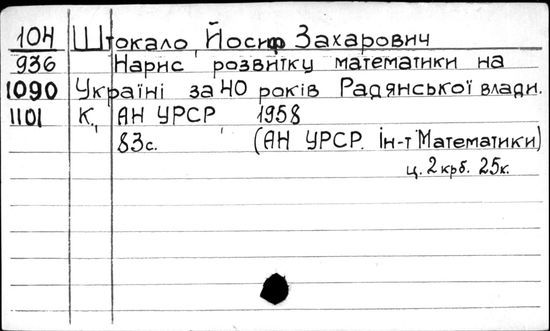 104 Штокало, Йосиф Захарович
936 Нарис розвитку математики на
1090 Україні за 40 років Радянської влади.
1101 К, АН УРСР, 1958
83с. (АН УРСР. Ін-т Математики)
ц. 2 крб. 25к.